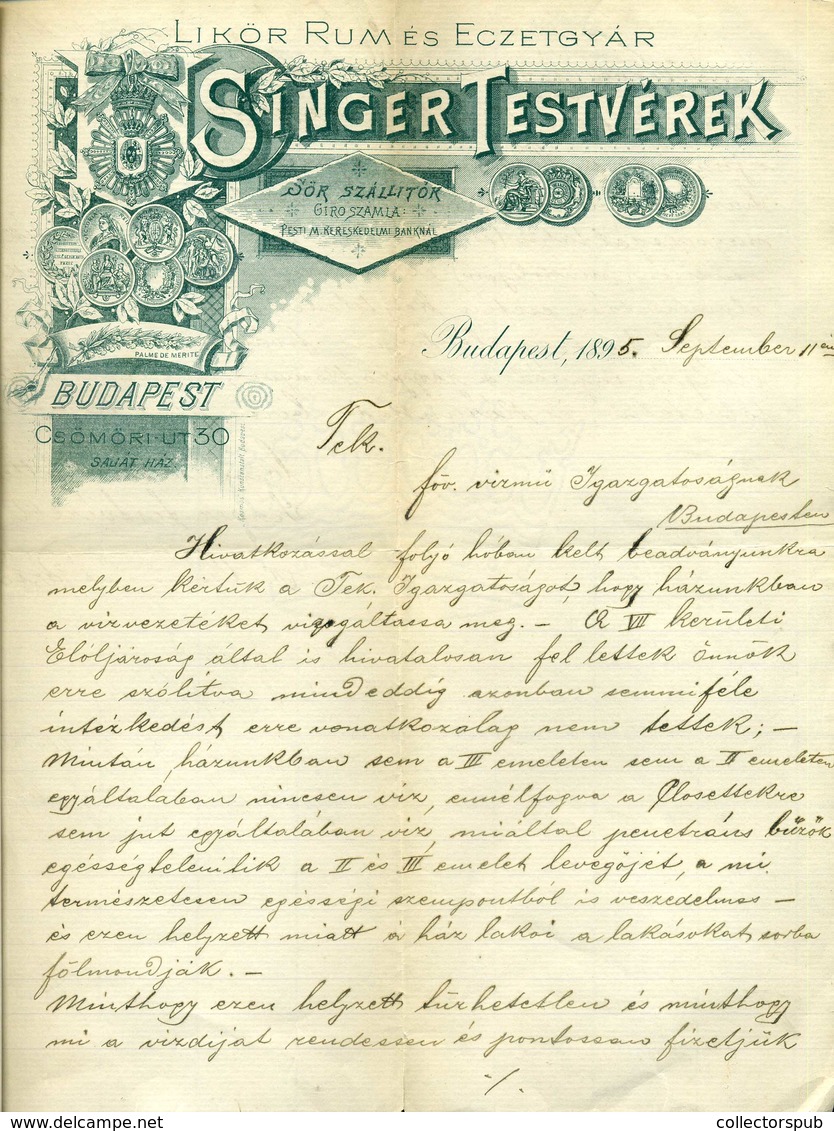 LIKÖR RUM ÉS ECZETGYÁR
SINGER TESTVÉREK
SÖR SZÁLLITÓK
GIRO SZAMLA:
PESTI M. KERESKEDELMI BANKNÁL
PALME DE MERITE
BUDAPEST
CSÖMÖRI-UT 30
SAJÁT HÁZ
Budapest, 1895. September 11 én
Tek.
föv. vizmü Igazgatoságnak
Budapesten
Hivatkozással folyó hóban kelt beadványunkra
melyben kértük a Tek. Igazgatoságot, hogy házunkban
a vizvezetéket vizsgáltassa meg. – A VII kerületi
Elóljároság által is hivatalosan fel lettek önnök
erre szólitva mindeddig azonban semmiféle
intézkedést erre vonatkozólag nem tettek; –
Miután házunkban sem a III emeleten sem a II emeleten
egyáltalában nincsen viz, ennélfogva a Closettekre
sem jut egyáltalában viz, miáltal penetráns bűzök
egésségtelenitik a II és III emelet levegőjét, a mi
természetesen egésségi szempontból is veszedelmes –
és ezen helyzett miatt a ház lakoi a lakásokat sorba
fölmondják. –
Minthogy ezen helyzett türhetetlen és minthogy
mi a vizdijat rendessen és pontossan fizetjük
./.
delcampe.net
collectorspub